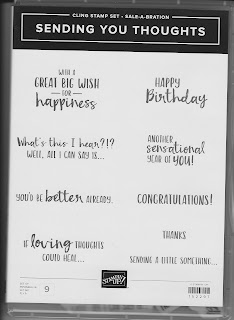 CLING STAMP SET • SALE-A-BRATION
SENDING YOU THOUGHTS
WITH A
GREAT BIG WISH
FOR
happiness
HAPPY
Birthday
What's this I hear?!?
WELL, ALL I CAN SAY IS...
ANOTHER
sensational
YEAR OF YOU!
YOU'D BE better ALREADY.
CONGRATULATIONS!
IF loving THOUGHTS
COULD HEAL...
THANKS
SENDING A LITTLE SOMETHING...
9
STAMPIN' UP!